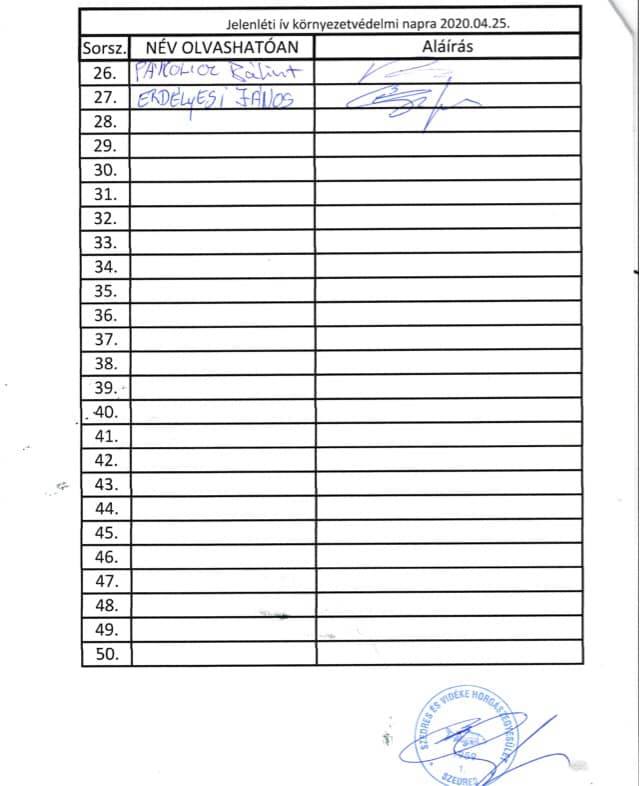 Jelenléti ív környezetvédelmi napra 2020.04.25.
Sorsz. NÉV OLVASHATÓAN Aláírás
26. Bálint
27. ERDÉLYESI JÁNOS
28.
29.
30.
31.
32.
33.
34.
35.
36.
37.
38.
39.
40.
41.
42.
43.
44.
45.
46.
47.
48.
49.
50.
SZEDRES ÉS VIDÉKE HORGÁSZEGYESÜLET
1.
SZEDRES